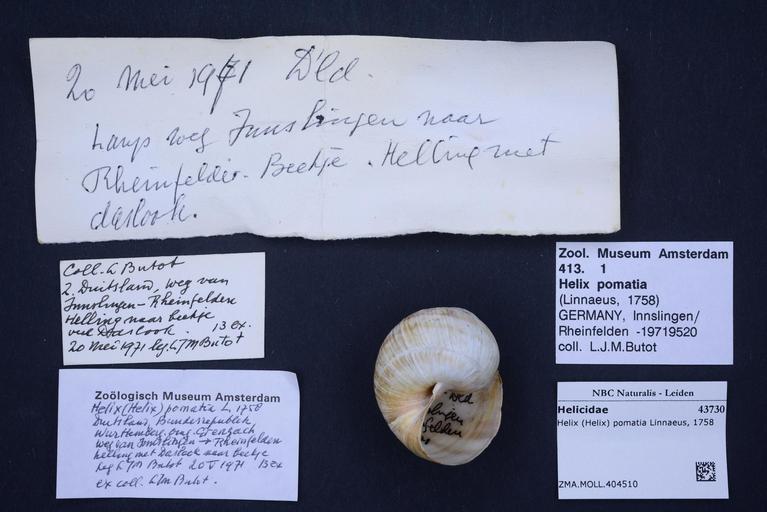 20 Mei 1971 D'ld.
Langs weg Innslingen naar
Rheinfelder. Beekje. Helling met
daslook.
Coll. L Butot
2. Duitsland, weg van
Innslingen - Rheinfelden
Helling naar beekje
vol Daslook. 13 ex.
20 Mei 1971 leg. L J M Butot
Zoölogisch Museum Amsterdam
Helix (Helix) pomatia L, 1758
Duitsland, Bundesrepublik
Wurttemberg, omg.
weg van Innslingen → Rheinfelden
helling met Daslook naar beekje
leg L JM Butot 20 V 1971 13 ex
ex coll. LJM Butot.
Zool. Museum Amsterdam
413. 1
Helix pomatia
(Linnaeus, 1758)
GERMANY, Innslingen/
Rheinfelden -19719520
coll. L.J.M.Butot
NBC Naturalis - Leiden
Helicidae 43730
Helix (Helix) pomatia Linnaeus, 1758
ZMA.MOLL.404510